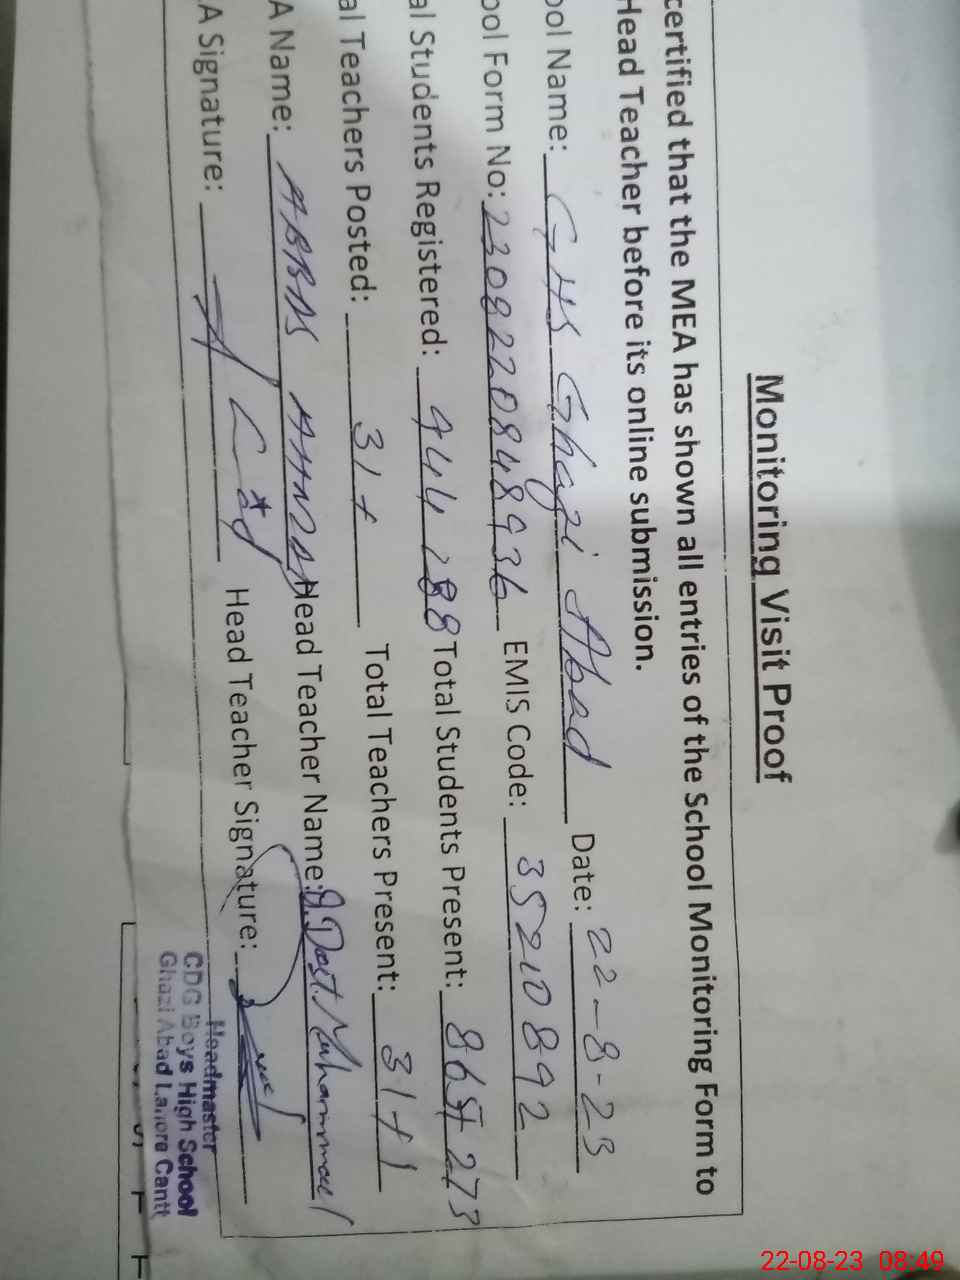 Monitoring Visit Proof
certified that the MEA has shown all entries of the School Monitoring Form to
Head Teacher before its online submission.
ool Name: GHS Ghazi Abad Date: 22-8-23
ool Form No: 23082208484936 EMIS Code: 35210892
al Students Registered: Total Students Present: 865+273
al Teachers Posted: 31+ Total Teachers Present: 31+1
A Name: ABBAS AHMAD Head Teacher Name: Dost Muhammad
A Signature: Head Teacher Signature:
Headmaster
CDG Boys High School
Ghazi Abad Lahore Cantt
22-08-23 08:49